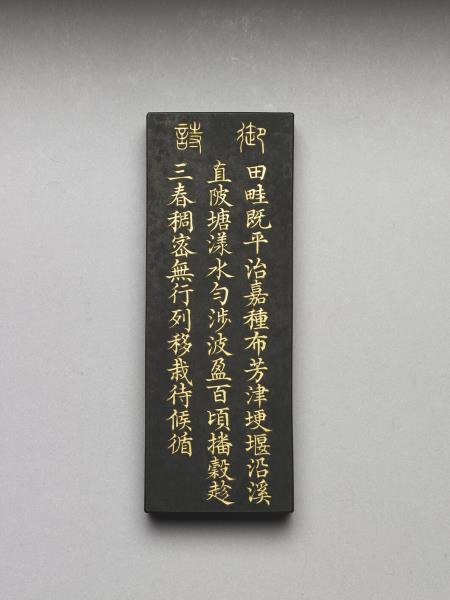 御詩
田畦既平治嘉種布芳津埂堰沿溪
直陂塘漾水勻涉波盈百頃播穀趁
三春稠密無行列移栽待候循